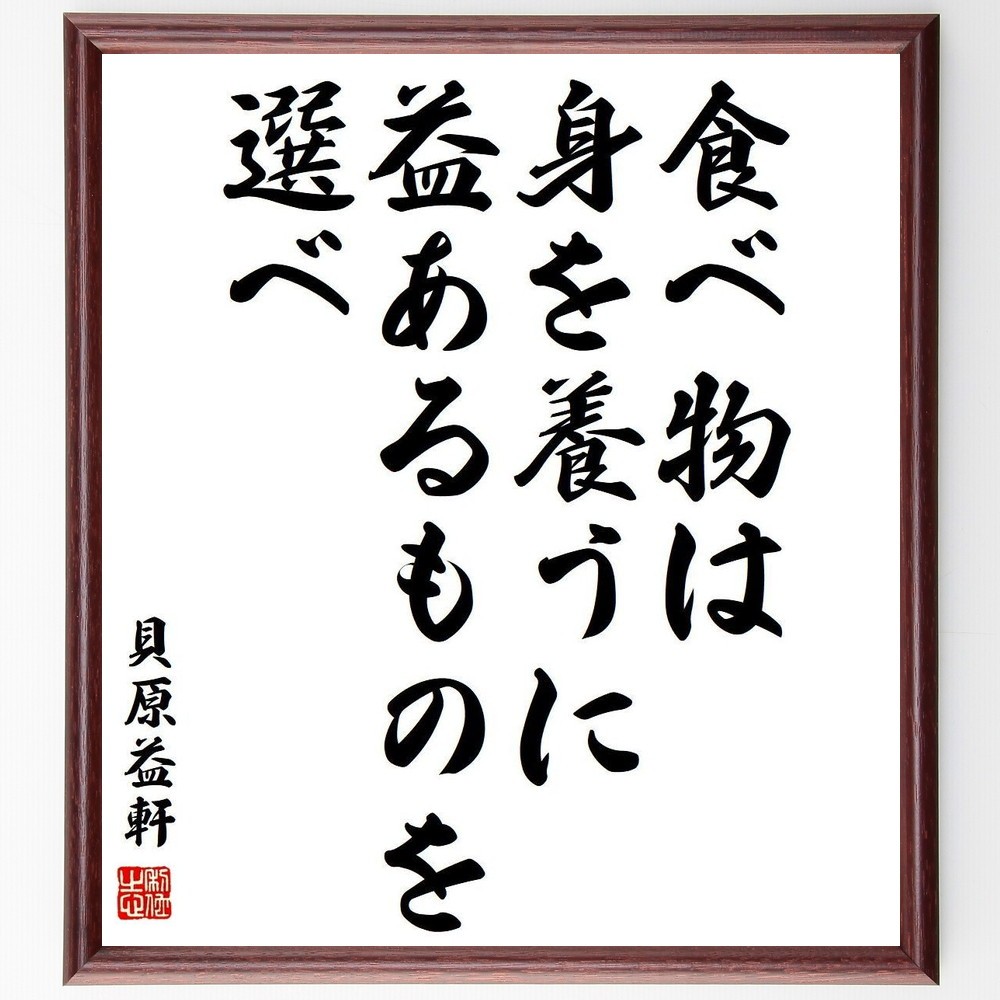 食べ物は
身を養うに
益あるものを
選べ
貝原益軒